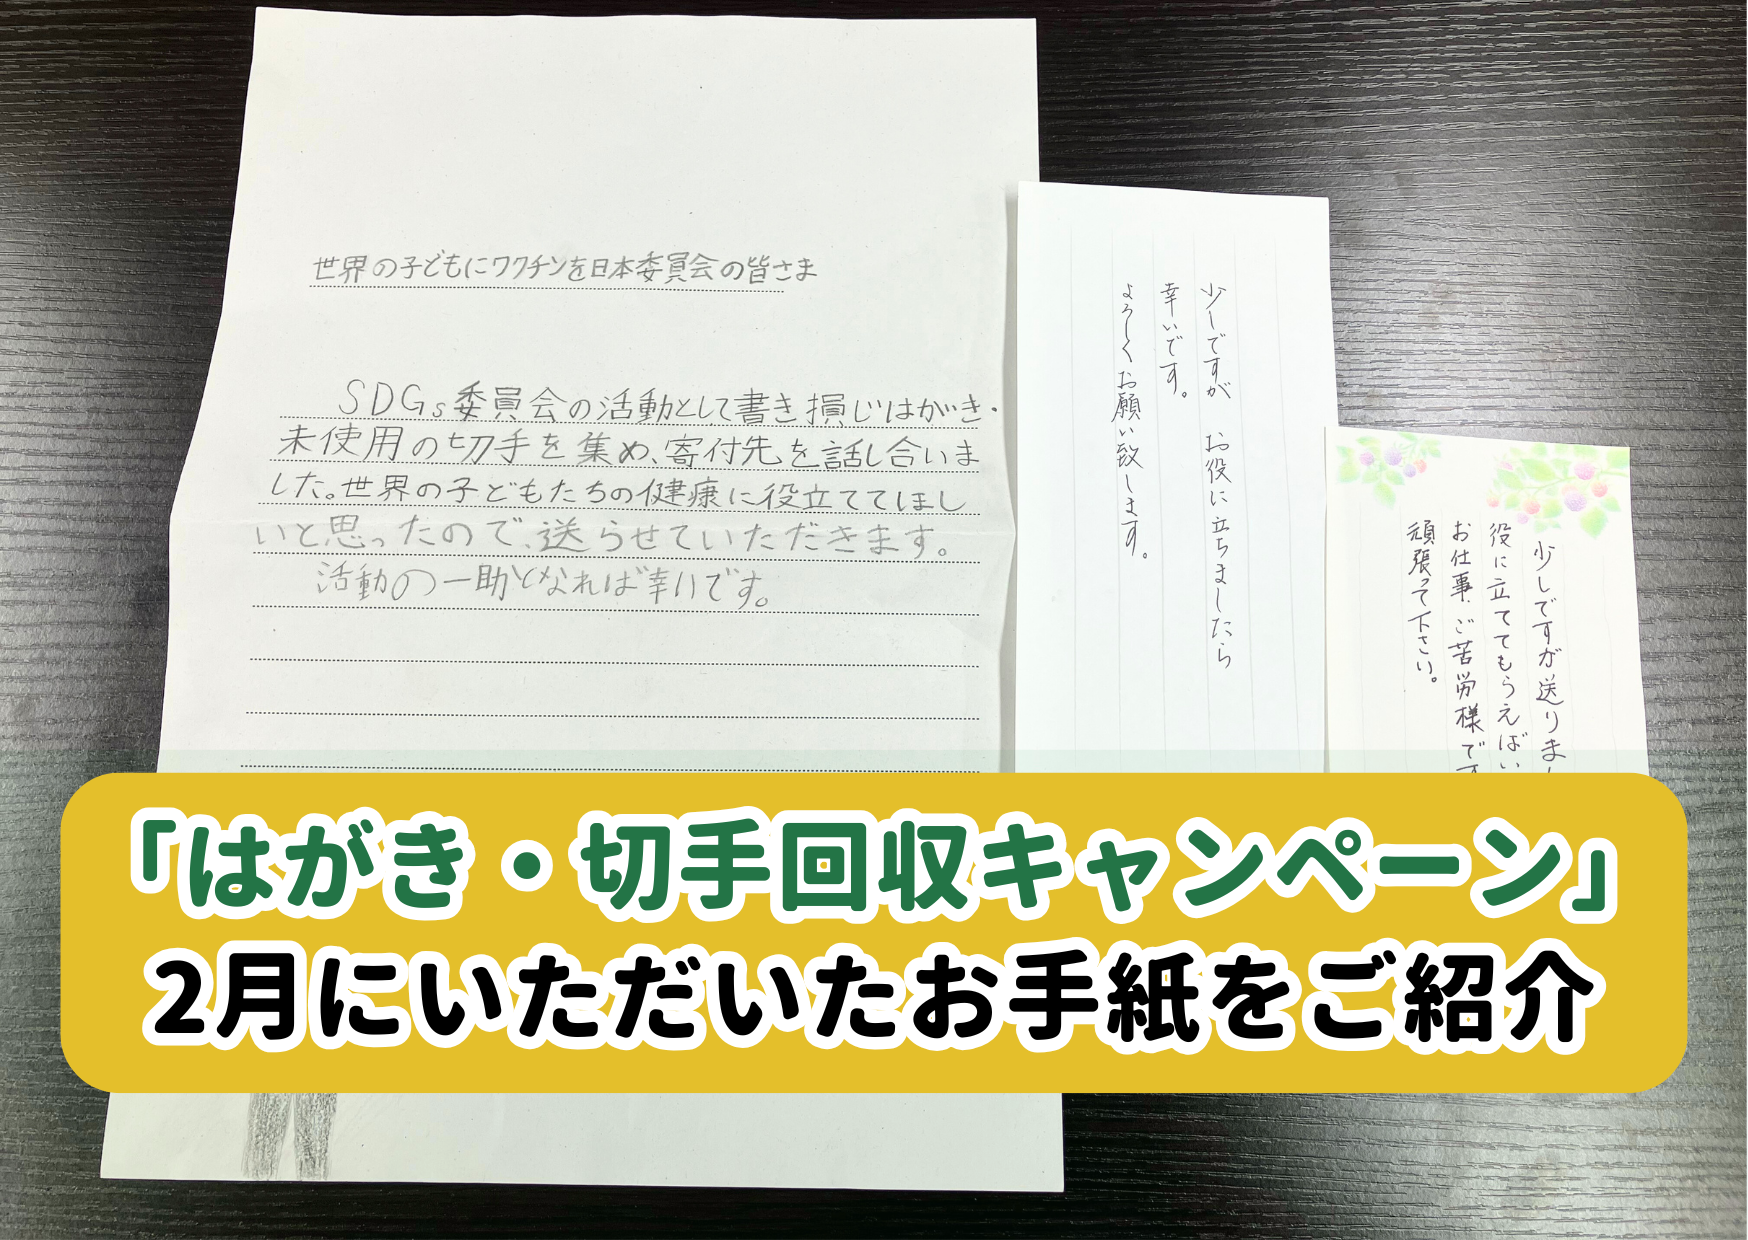 世界の子どもにワクチンを日本委員会の皆さま
SDGs委員会の活動として書き損じはがき・
未使用の切手を集め、寄付先を話し合いま
した。世界の子どもたちの健康に役立ててほし
いと思ったので、送らせていただきます。
活動の一助となれば幸いです。
少しですが お役に立ちましたら
幸いです。
よろしくお願い致します。
少しですが送りま
役に立ててもらえばい
お仕事、ご苦労様です
頑張って下さい。
「はがき・切手回収キャンペーン」
2月にいただいたお手紙をご紹介